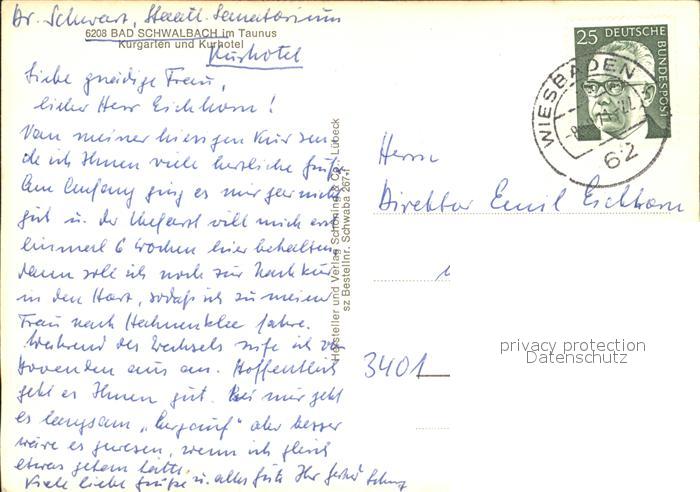 Dr. Schwarz, Staatl. Sanatorium
6208 BAD SCHWALBACH im Taunus
Kurgarten und Kurhotel
Kurhotel
Liebe gnädige Frau,
lieber Herr Eichhorn!
Von meiner hiesigen Kur sen-
de ich Ihnen viele herzliche Grüße
Am Anfang ging es mir gar nicht
gut u. der Chefarzt will mich erst
einmal 6 Wochen hier behalten,
dann soll ich noch zur Nachkur
in den Harz, sodaß ich zu meiner
Frau nach Hahnenklee fahre.
Während des Wechsels rufe ich von
Bovenden aus an. Hoffentlich
geht es Ihnen gut. Bei mir geht
es langsam "bergauf" aber besser
wäre es gewesen, wenn ich gleich
etwas getan hätte.
Viele liebe Grüße u. alles Gute Ihr
Hersteller und Verlag Schöning & Co., Lübeck
sz Bestellnr. Schwaba 267
25 DEUTSCHE
BUNDESPOST
WIESBADEN
62
Herrn
Direktor Emil Eichhorn
3401
privacy protection
Datenschutz